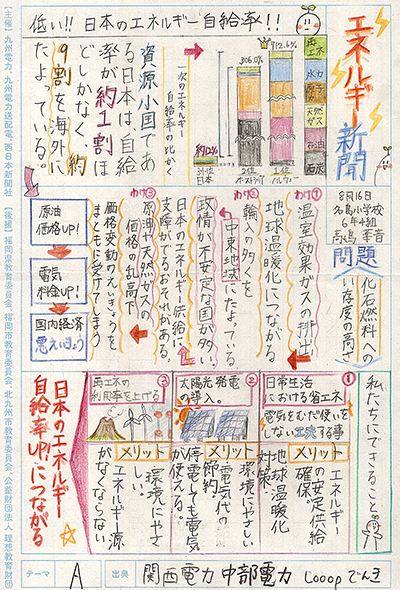 エネルギー新聞
8月16日
名島小学校
6年4組
低い!!日本のエネルギー自給率!!
資源小国であ
る日本は、自給
率が約1割ほ
どしかなく、約
9割を海外に
たよっている。
次のエネルギー
自給率の比かく
約12%
31位
日本
306.0%
2位
オーストラリア
912.6%
1位
ノルウェー
再エネ
水力
原子力
天然ガス
石油
石炭
問題
化石燃料への
い存度の高さ
わけ①
温室効果ガスの排出
地球温暖化につながる
わけ②
輸入の多くを
中東地域にたよっている
政情が不安定な国が多い
日本のエネルギー供給に
支障がでるおそれがある。
わけ③
原油や天然ガスの
価格の乱高下
価格変動のえいきょうを
まともに受けてしまう
原油
価格UP!
電気
料金UP!
国内経済
悪えいきょう
私たちにできること。
①
日常生活
における省エネ
電気をむだ使いを
しない工夫する事
メリット
エネルギー
の安定供給
確保。
地球温暖化
対策
②
太陽光発電
の導入。
メリット
環境にやさしい
電気代の
節約
停電しても電気
が使える。
③
再エネの
利用率を上げる
メリット
環境にやさ
しい。
エネルギー源
がなくならない
日本のエネルギー
自給率UP!につながる
テーマ
A
出典
関西電力 中部電力 Looopでんき
【主催】九州電力、九州電力送配電、西日本新聞社
【後援】福岡県教育委員会、福岡市教育委員会、北九州市教育委員会、公益財団法人 理想教育財団